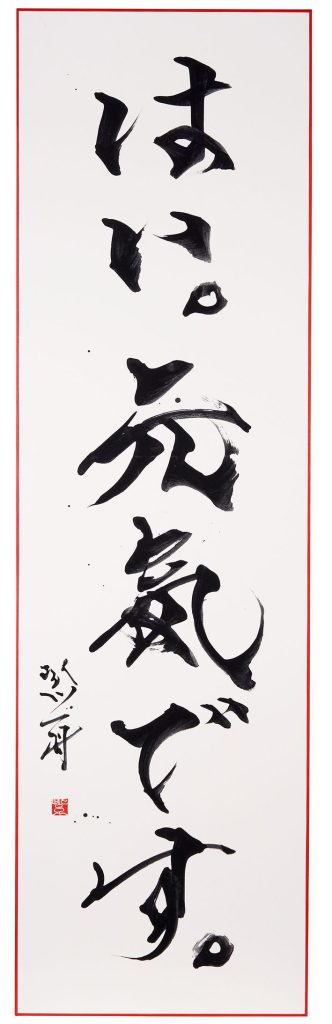 はい。元氣です。